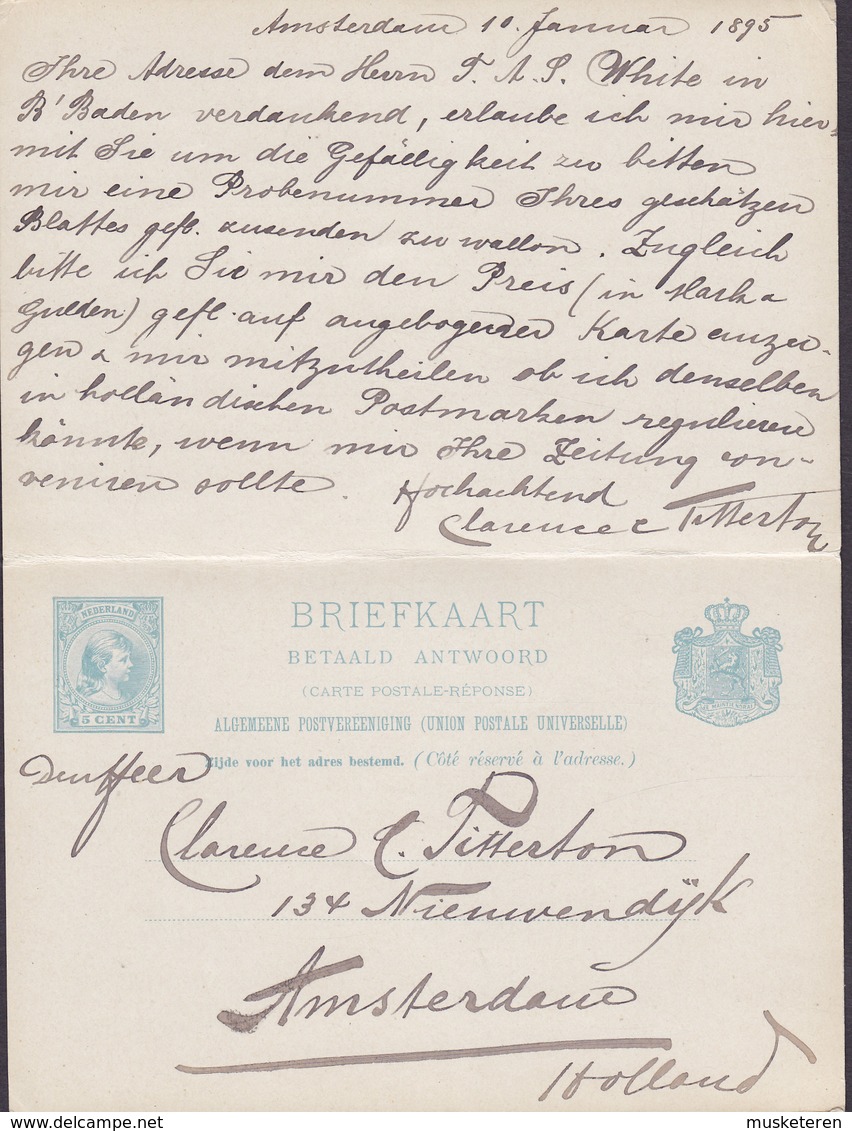 Amsterdam 10. Januar 1895
Ihre Adresse dem Herrn T. A. S. White in
B'Baden verdankend, erlaube ich mir hier-
mit Sie um die Gefälligkeit zu bitten
mir eine Probenummer Ihres geschätzen
Blattes gefl. zusenden zu wollen. Zugleich
bitte ich Sie mir den Preis (in Mark &
Gulden) gefl. auf angebogener Karte anzei-
gen & mir mitzutheilen ob ich denselben
in holländischen Postmarken regulieren
könnte, wenn mir Ihre Zeitung con-
veniren sollte. Hochachtend
Clarence C Titterton
NEDERLAND
5 CENT
BRIEFKAART
BETAALD ANTWOORD
(CARTE POSTALE-RÉPONSE)
ALGEMEENE POSTVEREENIGING (UNION POSTALE UNIVERSELLE)
Zijde voor het adres bestemd. (Côté réservé à l'adresse.)
JE MAINTIENDRAI
Den Heer
Clarence C. Titterton
134 Nieuwendijk
Amsterdam
Holland
musketeren
delcampe.net